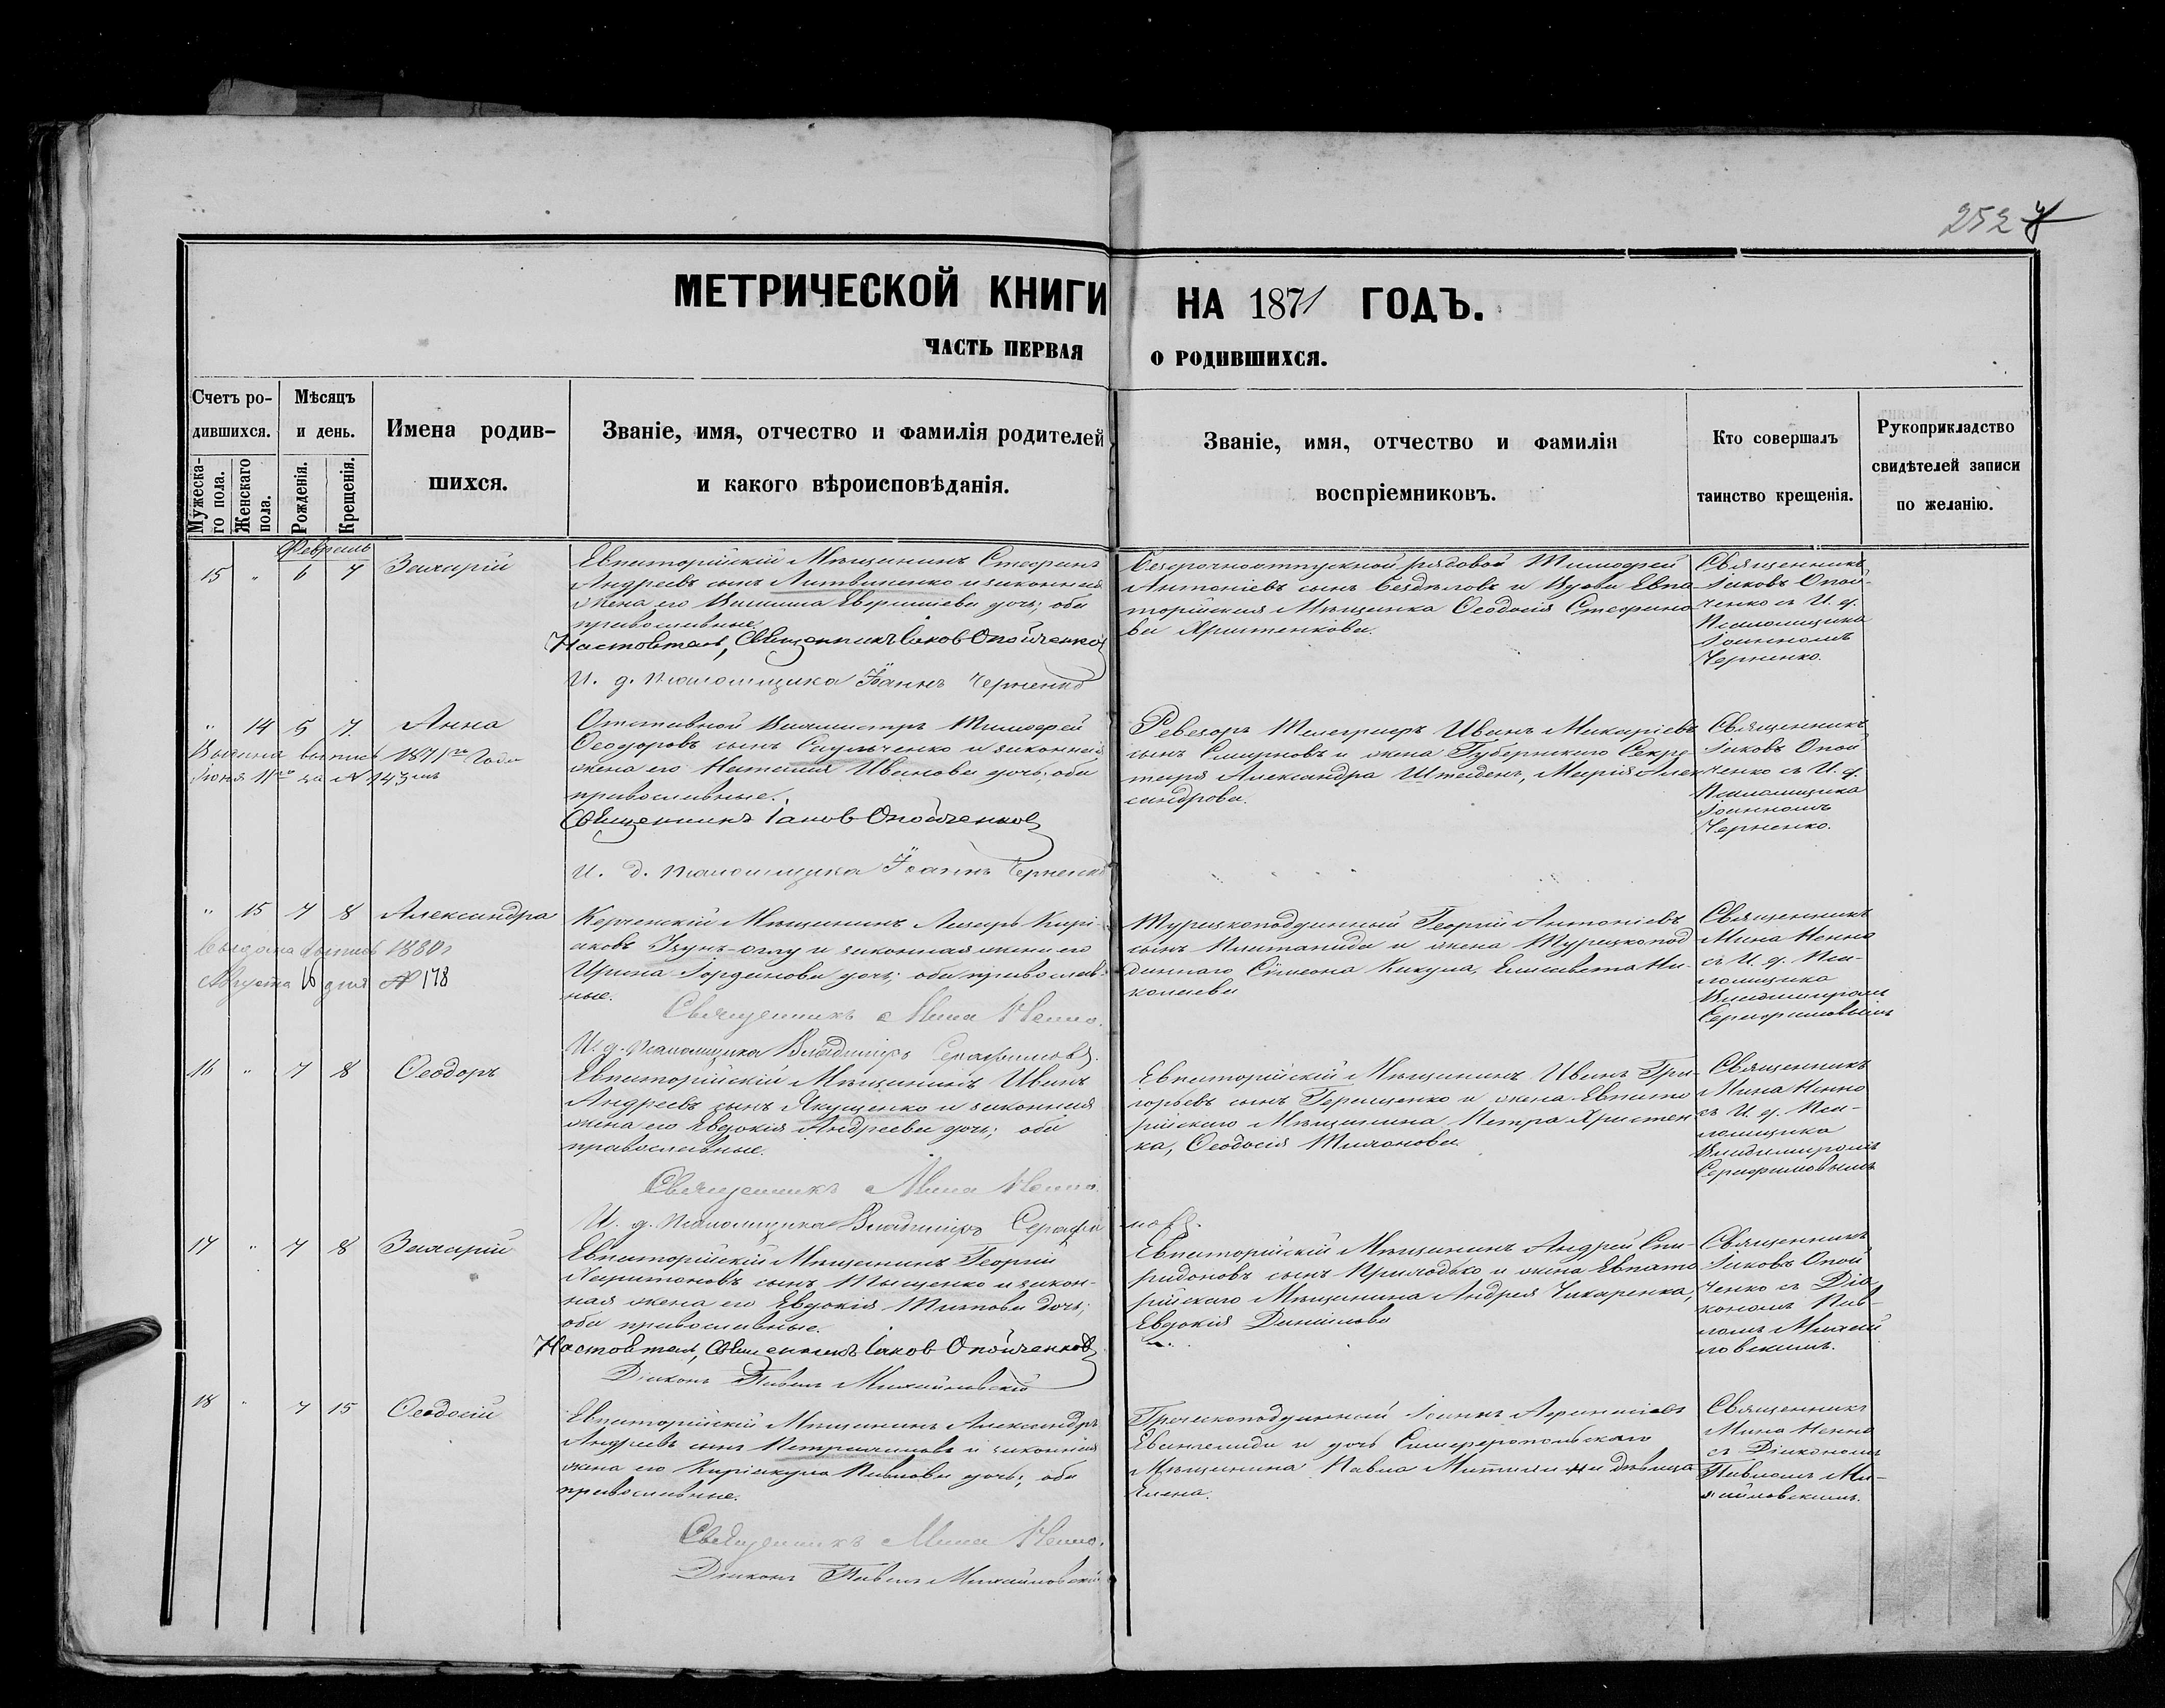 252
МЕТРИЧЕСКОЙ КНИГИ НА 1871 ГОДЪ.
ЧАСТЬ ПЕРВАЯ О РОДИВШИХСЯ.
Счетъ ро-
дившихся.
Мужеска-
го пола.
Женскаго
пола.
Мѣсяцъ
и день.
Рожденія.
Крещенія.
Имена родив-
шихся.
Званіе, имя, отчество и фамилія родителей
и какого вѣроисповѣданія.
Званіе, имя, отчество и фамилія
воспріемниковъ.
Кто совершалъ
таинство крещенія.
Рукоприкладство
свидѣтелей записи
по желанію.
Февраль
15 " 6 7 Захарій
Евпаторійскій Мѣщанинъ Стефанъ
Андреевъ сынъ Литвиненко и законная
жена его Васили
дочь; оба
православные.
Настоятель, Священникъ Іаковъ Опойченко
И. д. Псаломщика Іоаннъ Черненко
Безсрочноотпускной рядовой Тимофей
Антоніевъ сынъ Бездѣловъ и Вдова Евпа
торійская Мѣщанка Ѳеодосія Стефано
ва Христенкова.
Священникъ
Іаковъ Опой-
ченко съ И. д.
Псаломщика
Іоанномъ
Черненко.
" 14 5 7. Анна
Выдана выпись 1871го Года
Іюня 11го за № 143мъ
Отставной Вахмистръ Тимофей
Ѳеодоровъ сынъ Саульченко и законная
жена его Наталія Иванова дочь; оба
православные.
Священникъ Іаковъ Опойченко
И. д. псаломщика Іоаннъ Черненко
Ревезоръ Телеграфъ Иванъ Макаріевъ
сынъ Смирновъ и жена Губернскаго Секре-
таря Александра Штейденъ, Марія Алек
сандрова.
Священникъ
Іаковъ Опой
ченко съ И. д.
Псаломщика
Іоанномъ
Черненко.
" 15 7 8 Александра
Выдана выпись 1880г
Августа 16 дня № 178
Керченскій Мѣщанинъ Лазарь Кирі-
аковъ Узунъ-оглу и законная жена его
Ирина Горданова дочь; оба православ-
ные.
Священникъ Мина Ненно.
И. д. Псаломщика Владиміръ Серафимовъ.
Турецкоподданный Георгій Антоніевъ
сынъ Плитапида и жена Турецкопод
даннаго Симеона Кикула, Елисавета Ни-
колаева
Священникъ
Мина Ненно
съ И. д. Пса-
ломщика
Владиміромъ
Серафимовымъ
16 " 7 8 Ѳеодоръ
Евпаторійскій Мѣщанинъ Иванъ
Андреевъ сынъ Якущенко и законная
жена его Евдокія Андреева дочь; оба
православные.
Священникъ Мина Ненно.
И. д. Псаломщика Владиміръ Серафи мовъ.
Евпаторійскій Мѣщанинъ Иванъ Гри-
горьевъ сынъ Геращенко и жена Евпато
рійскаго Мѣщанина Петра Христен
ка, Ѳеодосія Тихонова.
Священникъ
Мина Ненно
съ И. д. Пса-
ломщика
Владиміромъ
Серафимовымъ
17 " 7 8 Захарій
Евпаторійскій Мѣщанинъ Георгій
Харитоновъ сынъ Тыщенко и закон-
ная жена его Евдокія Титова дочь;
оба православные.
Настоятель, Священникъ Іаковъ Опойченко
Діаконъ Павелъ Михайловскій
Евпаторійскій Мѣщанинъ Андрей Спи-
ридоновъ сынъ Приходько и жена Евпато
рійскаго Мѣщанина Андрея Чихаренка,
Евдокія Даніилова
Священникъ
Іаковъ Опой
ченко съ Діа
кономъ Пав-
ломъ Михай
ловскимъ.
18 " 7 15 Ѳеодосій
Евпаторійскій Мѣщанинъ Александръ
Андреевъ сынъ и законная
жена его Киріакула Павлова дочь; оба
православные.
Священникъ Мина Ненно.
Діаконъ Павелъ Михайловскій
Греческоподданный Іоаннъ Аѳанасіевъ
Евангелиди и дочь Симферопольскаго
Мѣщанина Павла дѣвица
Елена.
Священникъ
Мина Ненно
съ Діакономъ
Павломъ Ми-
хайловскимъ.